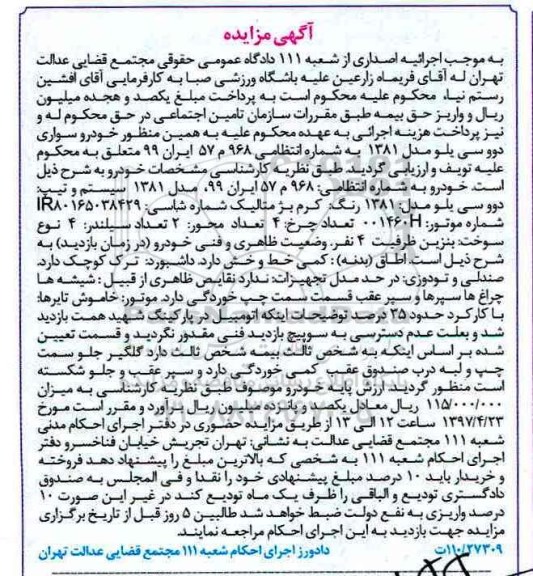 آگهی مزایده
به موجب اجرائیه اصداری از شعبه ۱۱۱ دادگاه عمومی حقوقی مجتمع قضایی عدالت
تهران له آقای فریماه زارعین علیه باشگاه ورزشی صبا به کارفرمایی آقای افشین
رستم نیا، محکوم علیه محکوم است به پرداخت مبلغ یکصد و هجده میلیون
ریال و واریز حق بیمه طبق مقررات سازمان تامین اجتماعی در حق محکوم له و
نیز پرداخت هزینه اجرائی به عهده محکوم علیه به همین منظور خودرو سواری
دوو سی یلو مدل ۱۳۸۱ به شماره انتظامی ۹۶۸ م ۵۷ ایران ۹۹ متعلق به محکوم
علیه توقیف و ارزیابی گردید. طبق نظریه کارشناسی مشخصات خودرو به شرح ذیل
است. خودرو به شماره انتظامی: ۹۶۸ م ۵۷ ایران ۹۹، مدل ۱۳۸۱ سیستم و تیپ:
دوو سی یلو مدل ۱۳۸۱ رنگ: کرم بژ متالیک شماره شاسی: IR۸۰۱۶۵۰۳۸۴۲۹
شماره موتور: ۰۰۱۴۶۰H تعداد چرخ: ۴ تعداد محور: ۲ تعداد سیلندر: ۴ نوع
سوخت: بنزین ظرفیت ۴ نفر. وضعیت ظاهری و فنی خودرو (در زمان بازدید) به
شرح ذیل است. اطاق (بدنه): کمی خط و خش دارد. داشبورد: ترک کوچک دارد.
صندلی و تودوزی: در حد مدل تجهیزات: ندارد نقایص ظاهری از قبیل: شیشه ها
چراغ ها سپرها و سپر عقب قسمت سمت چپ خوردگی دارد. موتور: خاموش تایرها:
با کارکرد حدود ۲۵ درصد توضیحات اینکه اتومبیل در پارکینگ شهید همت بازدید
شد و بعلت عدم دسترسی به سوییچ بازدید فنی مقدور نگردید و قسمت تعیین
شده بر اساس اینکه بیمه شخص ثالث بیمه شخص ثالث دارد گلگیر جلو سمت
چپ و لبه درب صندوق عقب کمی خوردگی دارد و سپر عقب و جلو شکسته
است منظور گردید. ارزش پایه خودرو موصوف طبق نظریه کارشناسی به میزان
۱۱۵/۰۰۰/۰۰۰ ریال معادل یکصد و پانزده میلیون ریال برآورد و مقرر است مورخ
۱۳۹۷/۴/۲۳ ساعت ۱۲ الی ۱۳ از طریق مزایده حضوری در دفتر اجرای احکام مدنی
شعبه ۱۱۱ مجتمع قضایی عدالت به نشانی: تهران تجریش خیابان فناخسرو دفتر
اجرای احکام شعبه ۱۱۱ به شخصی که بالاترین مبلغ را پیشنهاد دهد فروخته
و خریدار باید ۱۰ درصد مبلغ پیشنهادی خود را نقدا و فی المجلس به صندوق
دادگستری تودیع و الباقی را ظرف یک ماه تودیع کند در غیر این صورت ۱۰
درصد واریزی به نفع دولت ضبط خواهد شد طالبین ۵ روز قبل از تاریخ برگزاری
مزایده جهت بازدید به این اجرای احکام مراجعه نمایند.
۱۱۰/۲۷۳۰۹ت دادورز اجرای احکام شعبه ۱۱۱ مجتمع قضایی عدالت تهران